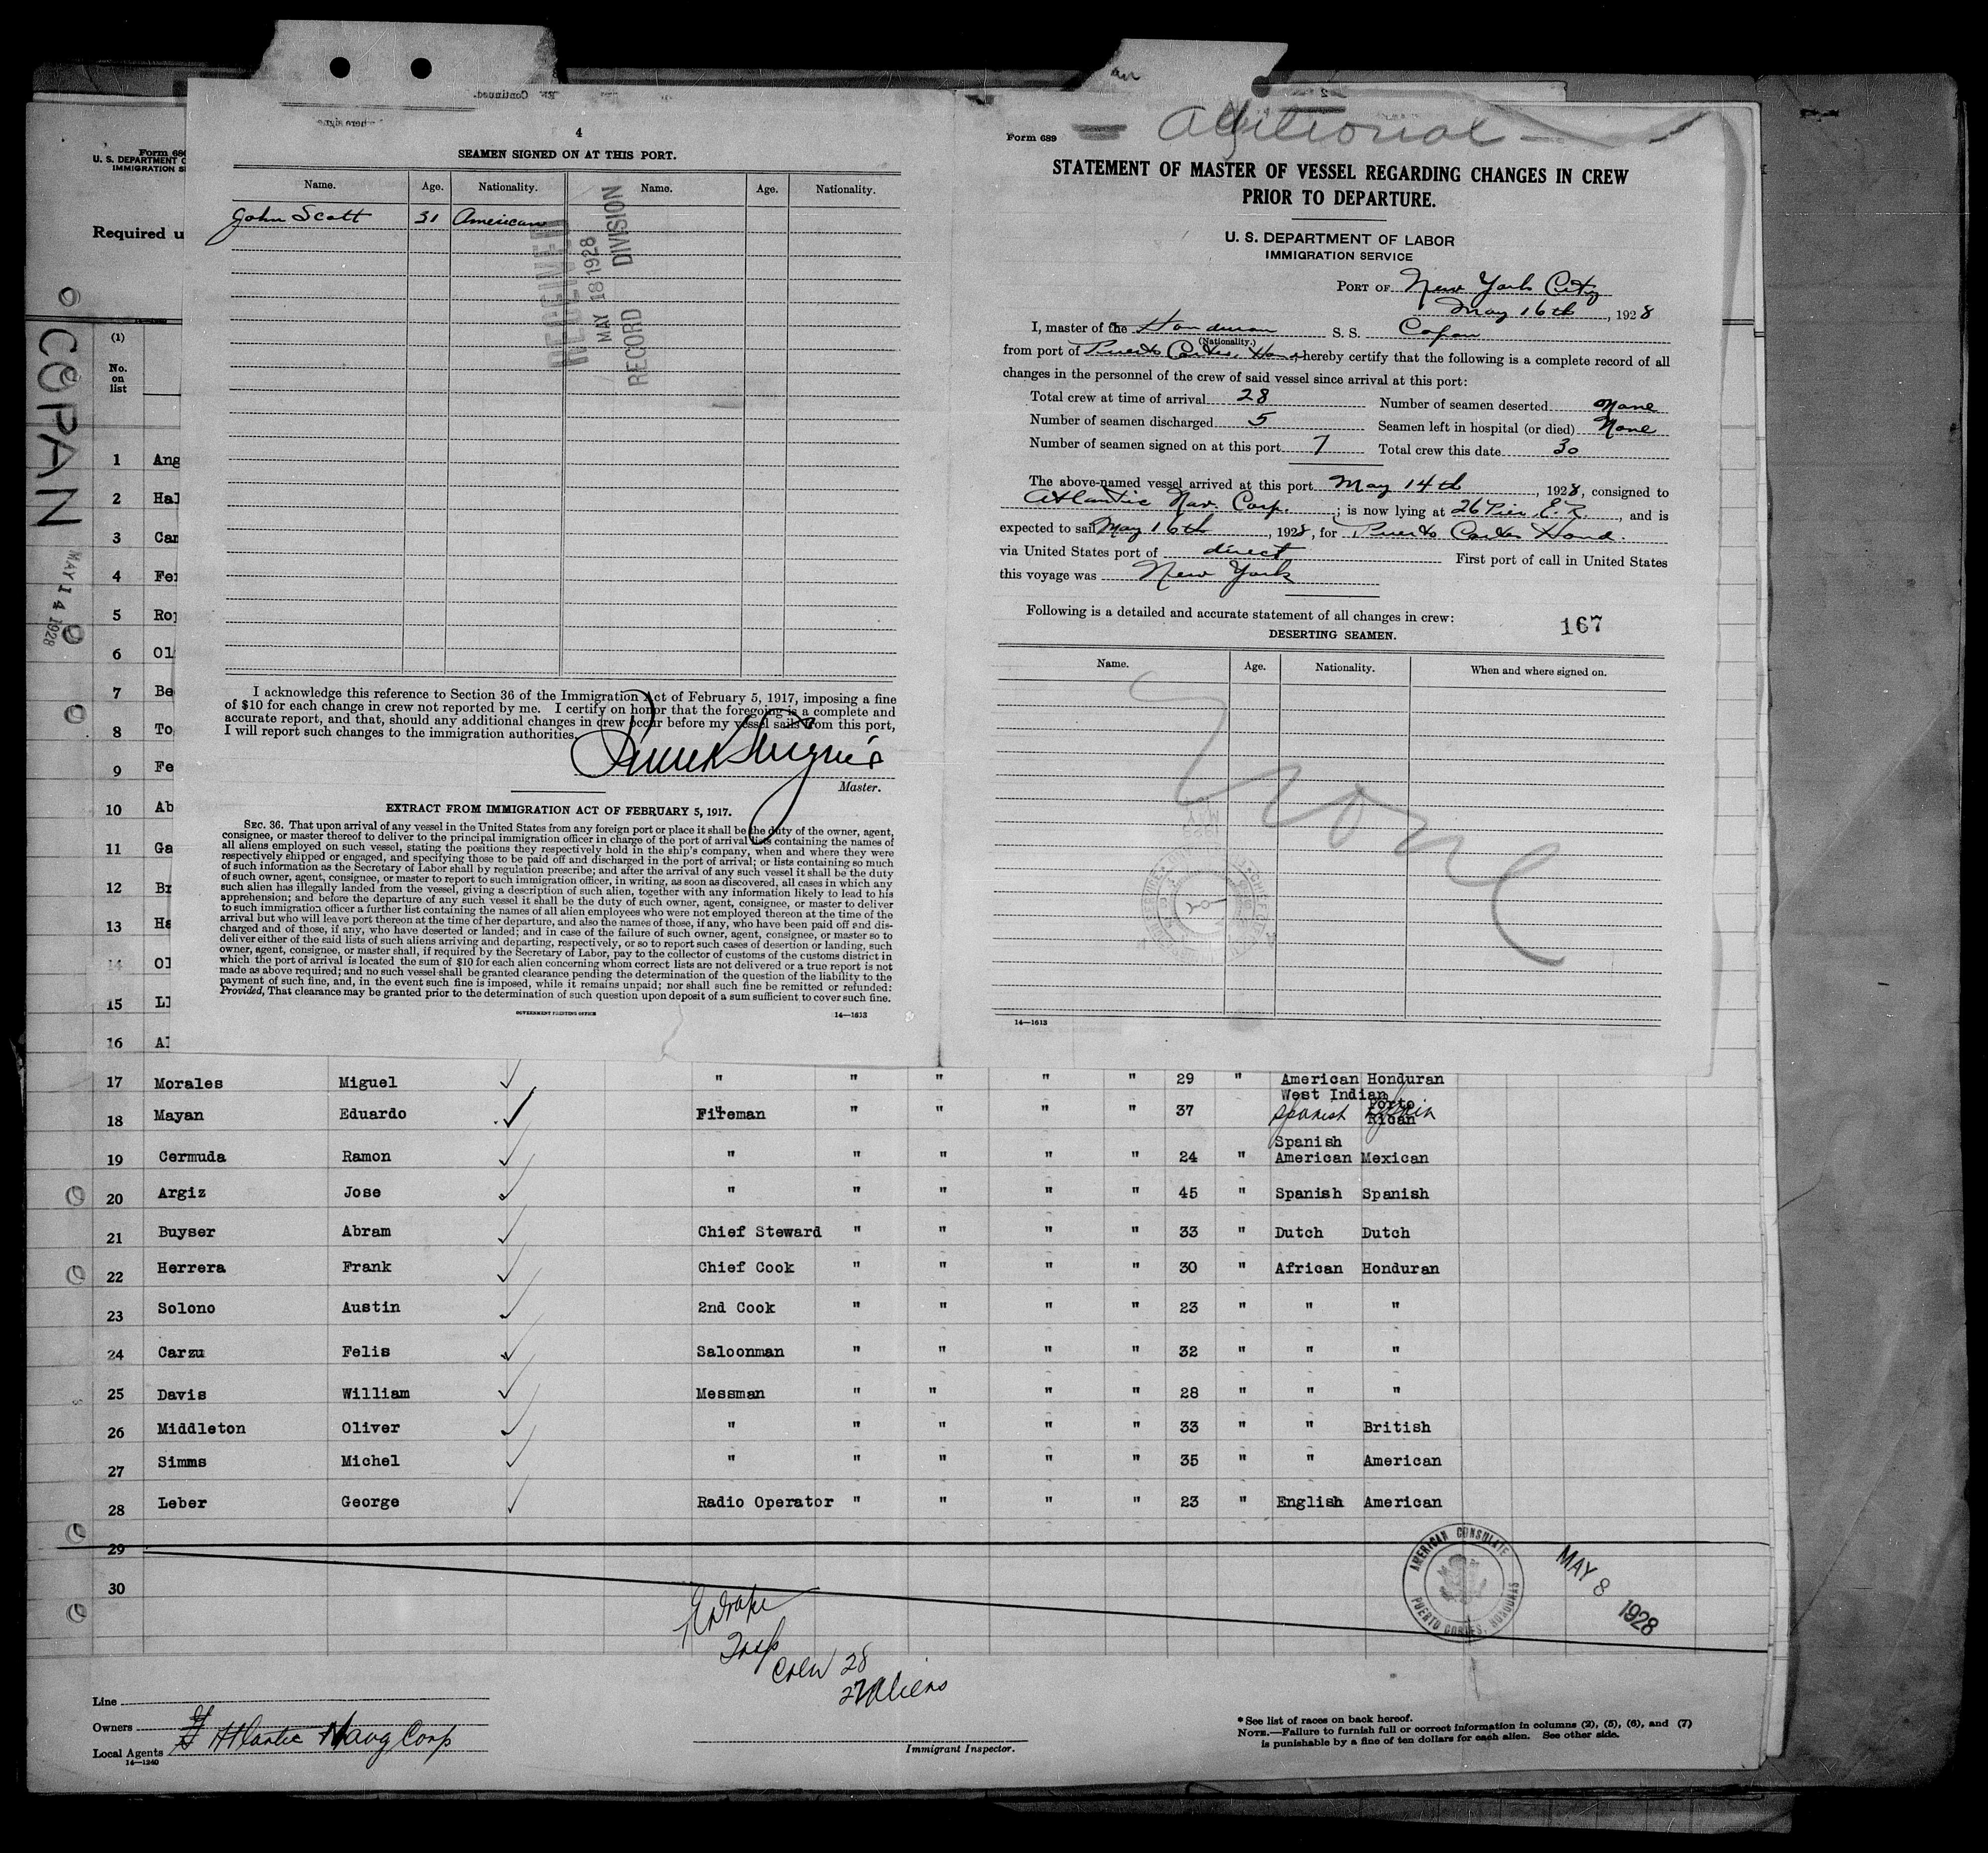 Form 689
U. S. DEPARTMENT
IMMIGRATION
Required u
COPAN
MAY 14 1928
(1)
No.
on
list
1 Ang
2 Hal
3 Car
4 Fer
5
6 Ol
7 Be
8 To
9 Fe
10 Ab
11 Ga
12 Br
13 Ha
14 Ol
15
16
Continued.
4
SEAMEN SIGNED ON AT THIS PORT.
Name. Age. Nationality. Name. Age. Nationality.
John Scott 31 American
RECEIVED
MAY 18 1928
RECORD DIVISION
I acknowledge this reference to Section 36 of the Immigration Act of February 5, 1917, imposing a fine
of $10 for each change in crew not reported by me. I certify on honor that the foregoing is a complete and
accurate report, and that, should any additional changes in crew occur before my vessel sails from this port,
I will report such changes to the immigration authorities.
Master.
EXTRACT FROM IMMIGRATION ACT OF FEBRUARY 5, 1917.
SEC. 36. That upon arrival of any vessel in the United States from any foreign port or place it shall be the duty of the owner, agent,
consignee, or master thereof to deliver to the principal immigration officer in charge of the port of arrival lists containing the names of
all aliens employed on such vessel, stating the positions they respectively hold in the ship's company, when and where they were
respectively shipped or engaged, and specifying those to be paid off and discharged in the port of arrival; or lists containing so much
of such information as the Secretary of Labor shall by regulation prescribe; and after the arrival of any such vessel it shall be the duty
of such owner, agent, consignee, or master to report to such immigration officer, in writing, as soon as discovered, all cases in which any
such alien has illegally landed from the vessel, giving a description of such alien, together with any information likely to lead to his
apprehension; and before the departure of any such vessel it shall be the duty of such owner, agent, consignee, or master to deliver
to such immigration officer a further list containing the names of all alien employees who were not employed thereon at the time of the
arrival but who will leave port thereon at the time of her departure, and also the names of those, if any, who have been paid off and dis-
charged and of those, if any, who have deserted or landed; and in case of the failure of such owner, agent, consignee, or master so to
deliver either of the said lists of such aliens arriving and departing, respectively, or so to report such cases of desertion or landing, such
owner, agent, consignee, or master shall, if required by the Secretary of Labor, pay to the collector of customs of the customs district in
which the port of arrival is located the sum of $10 for each alien concerning whom correct lists are not delivered or a true report is not
made as above required; and no such vessel shall be granted clearance pending the determination of the question of the liability to the
payment of such fine, and, in the event such fine is imposed, while it remains unpaid; nor shall such fine be remitted or refunded:
Provided, That clearance may be granted prior to the determination of such question upon deposit of a sum sufficient to cover such fine.
GOVERNMENT PRINTING OFFICE 14—1613
Form 689
Additional
STATEMENT OF MASTER OF VESSEL REGARDING CHANGES IN CREW
PRIOR TO DEPARTURE.
U. S. DEPARTMENT OF LABOR
IMMIGRATION SERVICE
PORT OF New York City
May 16th, 1928
I, master of the Honduran S. S. Copan
(Nationality.)
from port of Puerto Cortes, Hon hereby certify that the following is a complete record of all
changes in the personnel of the crew of said vessel since arrival at this port:
Total crew at time of arrival 28 Number of seamen deserted None
Number of seamen discharged 5 Seamen left in hospital (or died) None
Number of seamen signed on at this port 7 Total crew this date 30
The above-named vessel arrived at this port May 14th, 1928, consigned to
Atlantic Nav. Corp.; is now lying at 26 Pier, E. R., and is
expected to sail May 16th, 1928, for Puerto Cortes Hond.
via United States port of direct First port of call in United States
this voyage was New York
Following is a detailed and accurate statement of all changes in crew:
167
DESERTING SEAMEN.
Name. Age. Nationality. When and where signed on.
None
14—1613
17 Morales Miguel " " " " " 29 " American Honduran
18 Mayan Eduardo Fireman " " " " 37 West Indian Spanish Porto Rican
19 Cermuda Ramon " " " " " 24 " Spanish American Mexican
20 Argiz Jose " " " " " 45 " Spanish Spanish
21 Buyser Abram Chief Steward " " " " 33 " Dutch Dutch
22 Herrera Frank Chief Cook " " " " 30 " African Honduran
23 Solono Austin 2nd Cook " " " " 23 " " "
24 Carzu Felis Saloonman " " " " 32 " " "
25 Davis William Messman " " " " 28 " " "
26 Middleton Oliver " " " " " 33 " " British
27 Simms Michel " " " " " 35 " " American
28 Leber George Radio Operator " " " " 23 " English American
29
30
AMERICAN CONSULATE
PUERTO CORTES, HONDURAS
MAY 8 1928
Drake
Insp
Crew 28
27 Aliens
Line
Owners
Local Agents Atlantic Navg Corp
14—1240
Immigrant Inspector.
*See list of races on back hereof.
NOTE.—Failure to furnish full or correct information in columns (2), (5), (6), and (7)
is punishable by a fine of ten dollars for each alien. See other side.